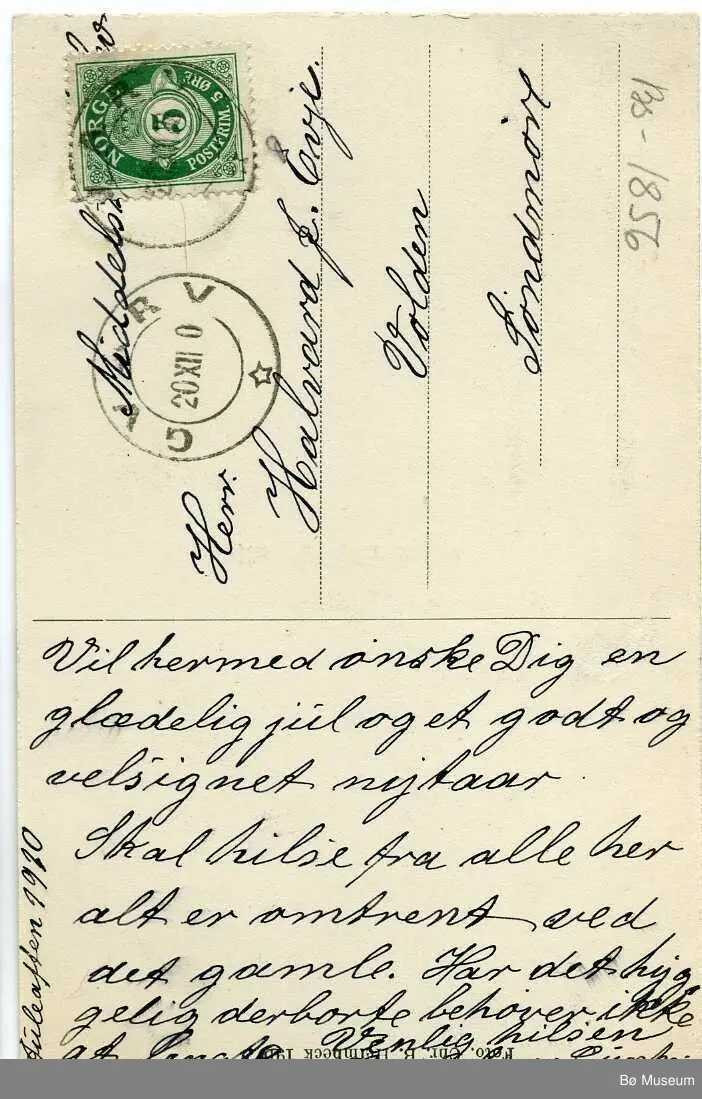 NORGE
5
POSTFRIM. 5 ØRE
20 XII 0
Herr
Halvard J. Evje.
Volden
Söndmöre
Vil hermed ønske Dig en
glædelig júl og et godt og
velsignet nytaar
Skal hilse fra alle her
alt er omtrent ved
det gamle. Har det hyg
gelig derborte behøver ikke
at
Venlig hilsen
Júleaften 1910
Foto. Chr. B. Heimbeck
Bø Museum